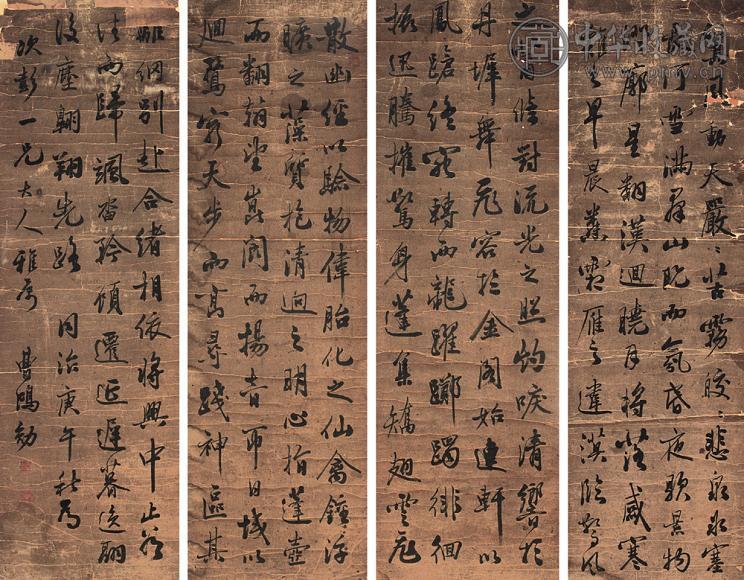 箕風動天嚴嚴苦霧皎皎悲泉冰塞
長河雪滿群山既而氛昏夜歇景物
澄廓星翻漢迴曉月將落感寒
雞之早晨憐霜雁之違漠臨驚風
之蕭條對流光之照灼唳清響於
丹墀舞飛容於金閣始連軒以
鳳蹌終宛轉而龍躍躑躅徘徊
振迅騰摧驚身蓬集矯翅雪飛
散幽經以驗物偉胎化之仙禽鍾浮
曠之藻質抱清迥之明心指蓬壺
而翻翰望崑閬而揚音帀日域以
迴鶩窮天步而高尋踐神區其
離綱別赴合緒相依將興中止若
往而歸颯沓矜顧遷延遲暮逸翮
後塵翱翔先路 同治庚午秋為
次彭一兄大人雅屬 曹鴻勛
中华收藏网